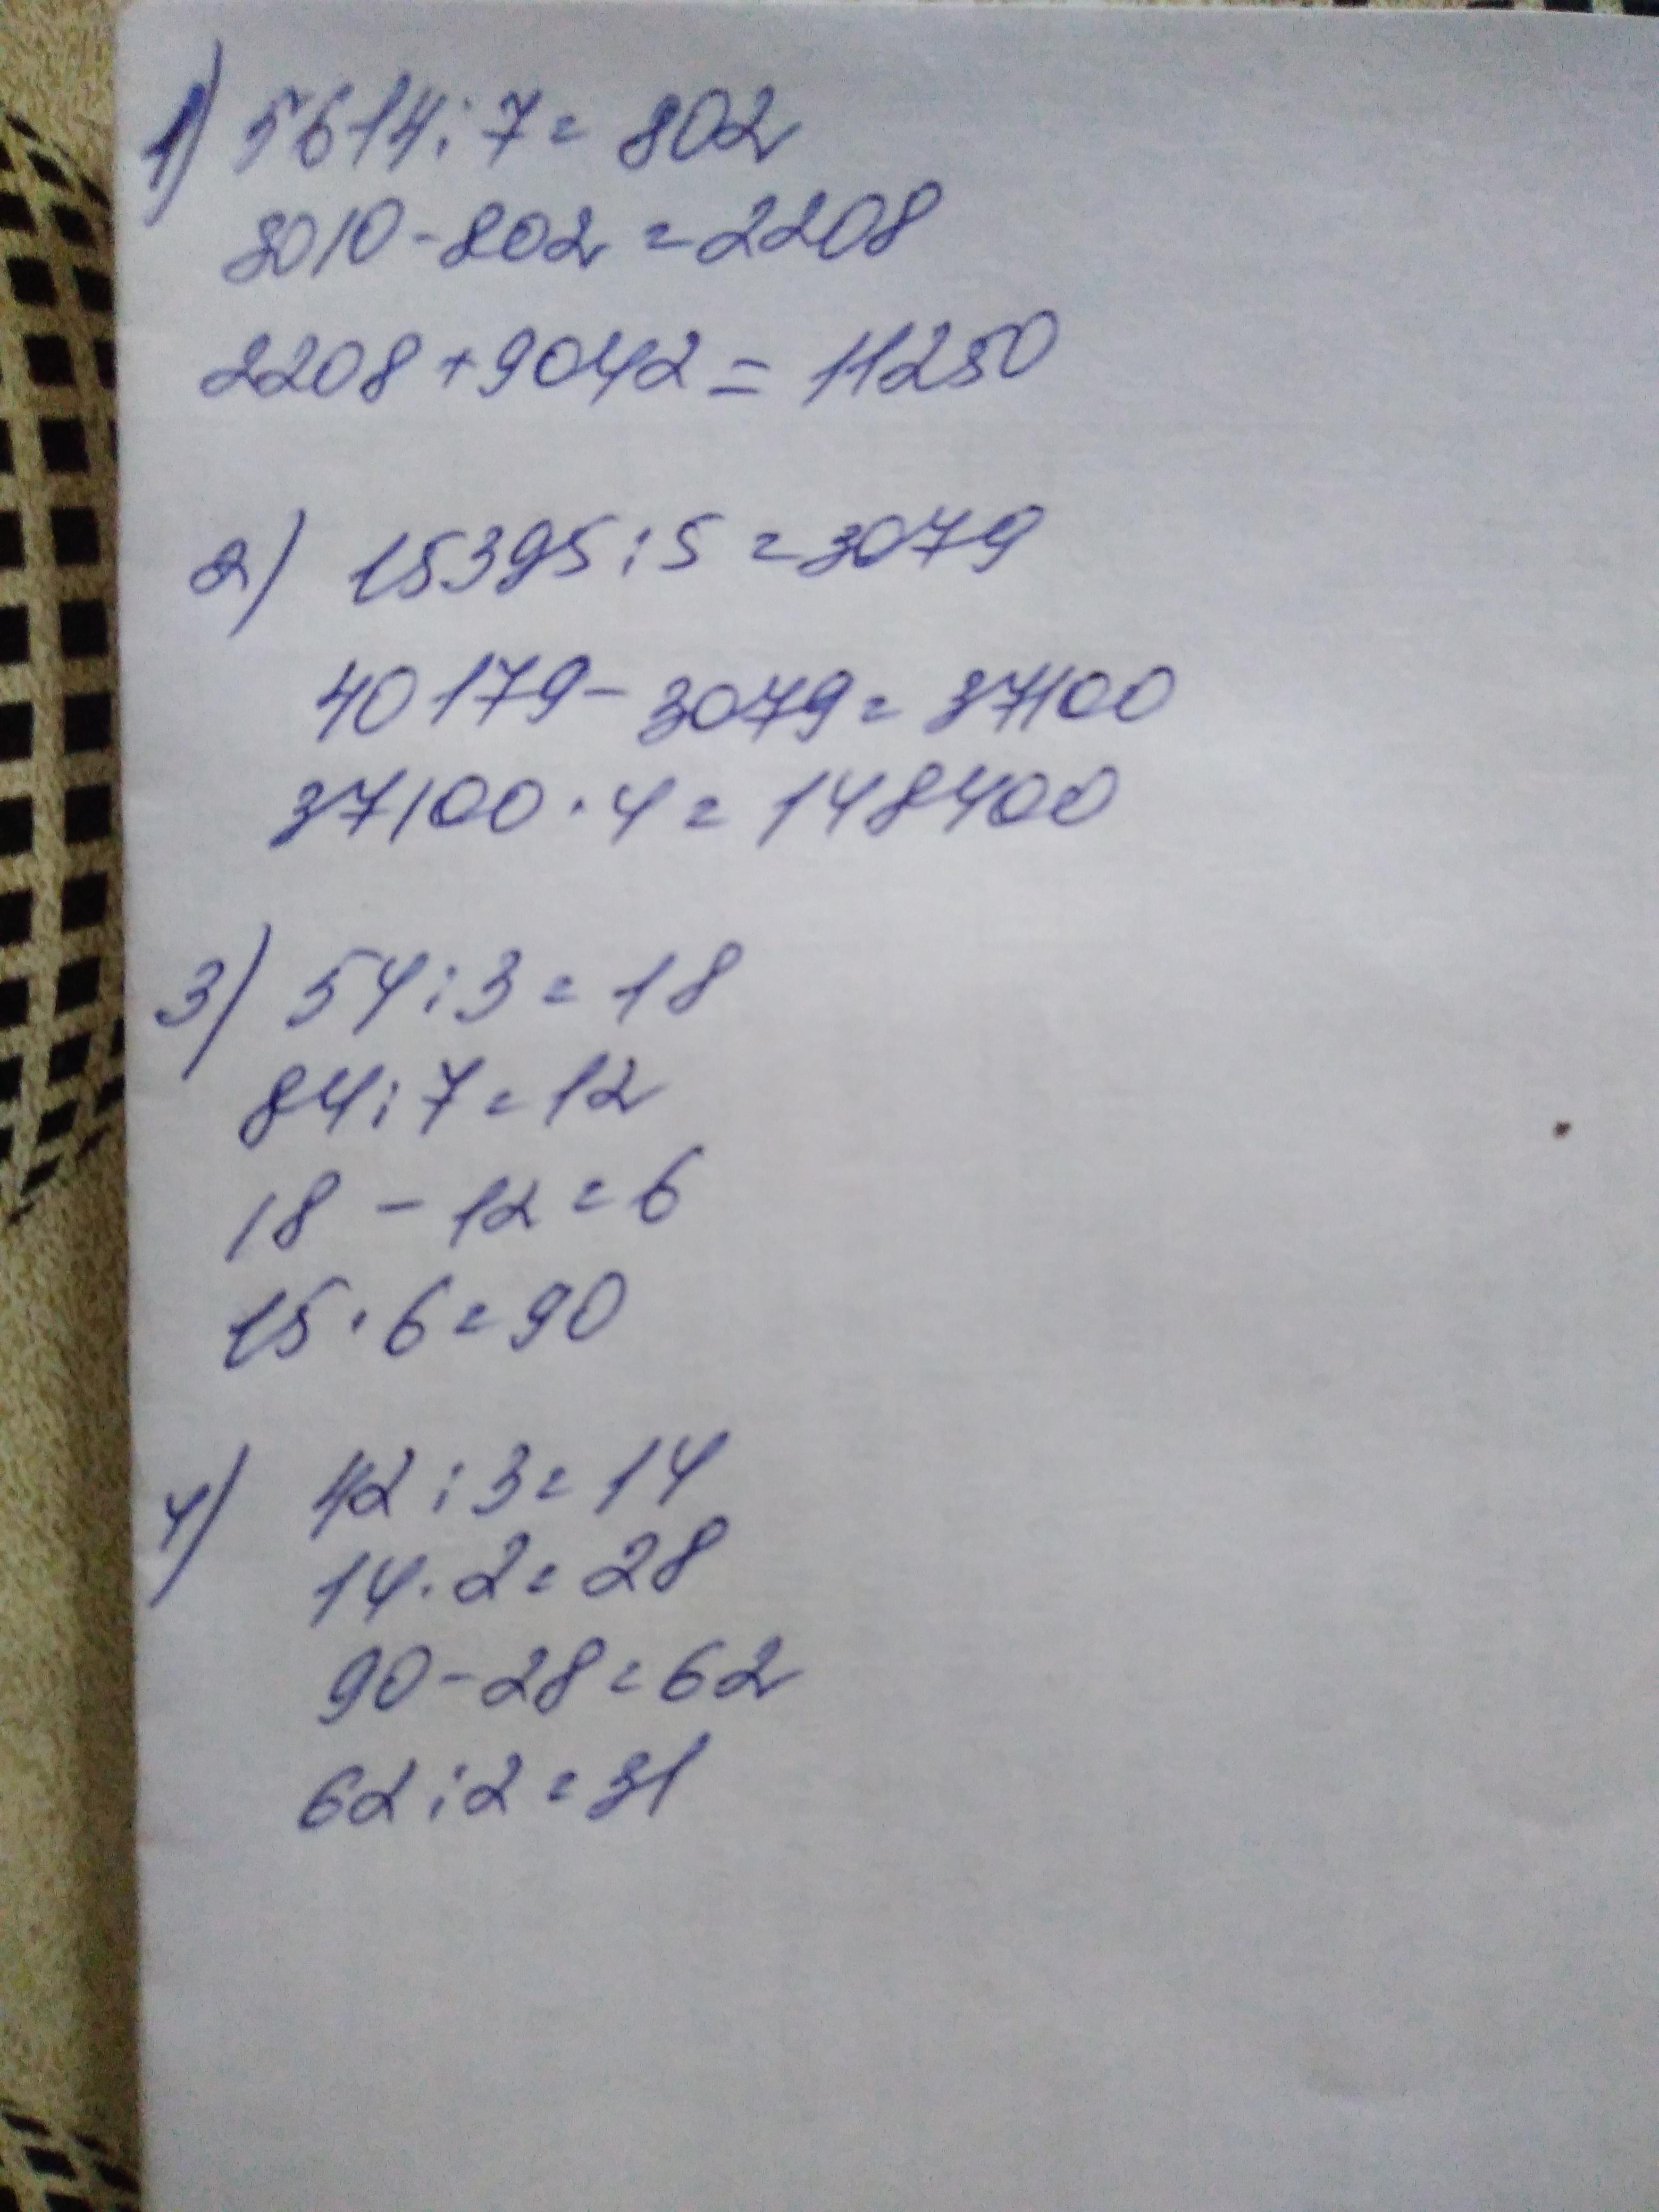 1) 5614:7=802
3010-802=2208
2208+9042=11250
2) 15395:5=3079
40179-3079=37100
37100·4=148400
3) 54:3=18
84:7=12
18-12=6
15·6=90
4) 42:3=14
14·2=28
90-28=62
62:2=31